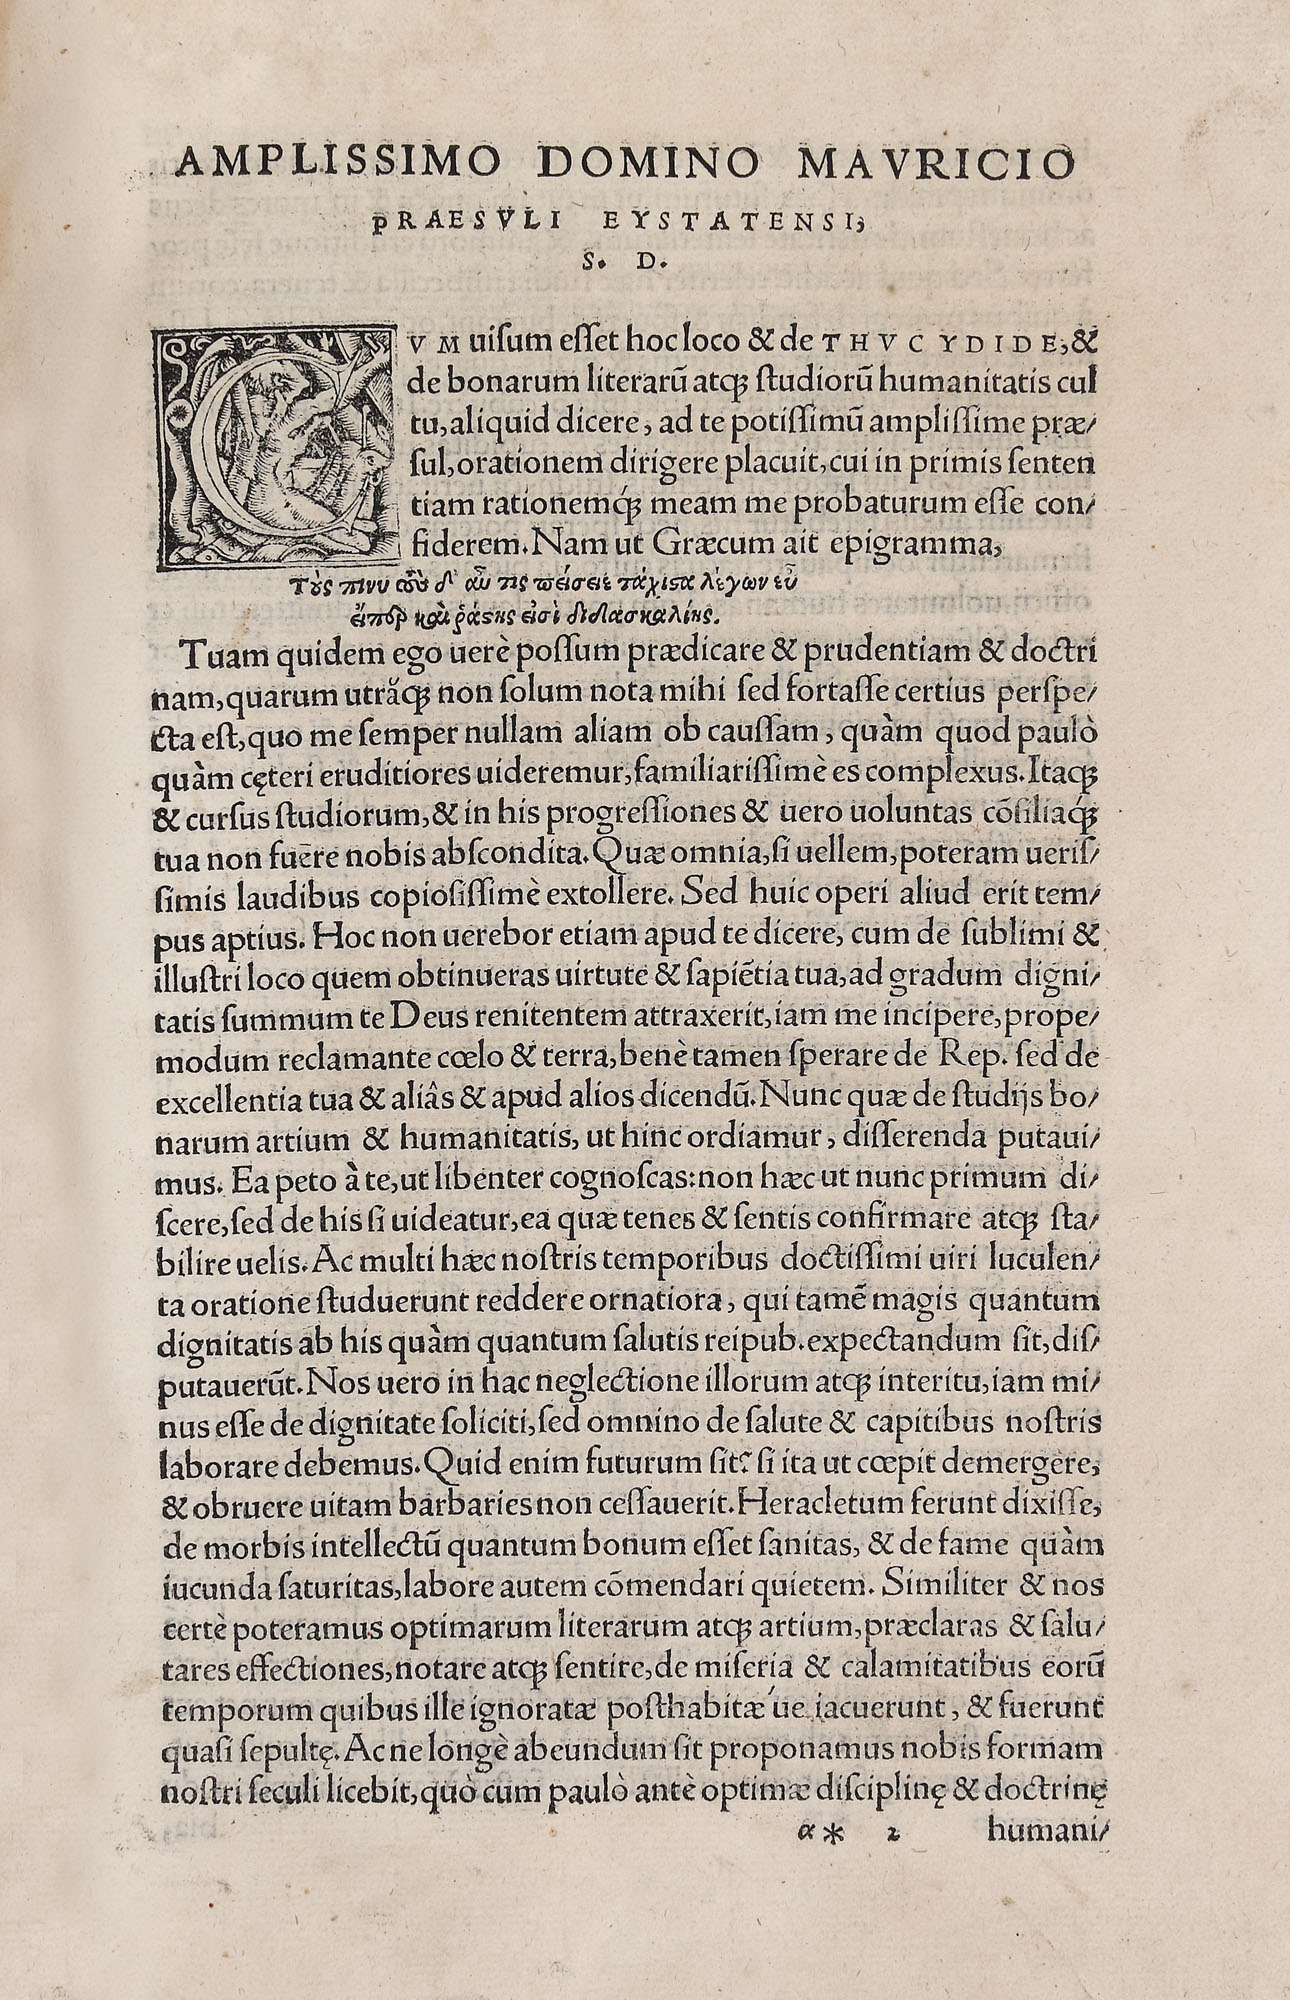 AMPLISSIMO DOMINO MAVRICIO
PRAESVLI EYSTATENSI,
S. D.
CVM uiſum eſſet hoc loco & de THVCYDIDE, &
de bonarum literarũ atq́; ſtudiorũ humanitatis cul
tu, aliquid dicere, ad te potiſſimũ ampliſſime præ/
ſul, orationem dirigere placuit, cui in primis ſenten
tiam rationemq́; meam me probaturum eſſe con/
fiderem. Nam ut Græcum ait epigramma,
Τοὺς πινυτοὺς δ' αὖ τις πείσειε τάχιστα λέγων εὖ
εἴπερ καὶ ῥάστης εἰσὶ διδασκαλίης.
Tuam quidem ego uerè poſſum prædicare & prudentiam & doctri
nam, quarum utrãq; non ſolum nota mihi ſed fortaſſe certius perſpe/
cta eſt, quo me ſemper nullam aliam ob cauſſam, quàm quod paulò
quàm cęteri eruditiores uideremur, familiariſſimè es complexus. Itaq;
& curſus ſtudiorum, & in his progreſſiones & uero uoluntas cõſiliaq́;
tua non fuēre nobis abſcondita. Quæ omnia, ſi uellem, poteram ueriſ/
ſimis laudibus copioſiſſimè extollere. Sed huic operi aliud erit tem/
pus aptius. Hoc non uerebor etiam apud te dicere, cum de ſublimi &
illuſtri loco quem obtinueras uirtute & ſapiẽtia tua, ad gradum digni/
tatis ſummum te Deus renitentem attraxerit, iam me incipere, prope/
modum reclamante cœlo & terra, benè tamen ſperare de Rep. ſed de
excellentia tua & aliâs & apud alios dicendũ. Nunc quæ de ſtudijs bo/
narum artium & humanitatis, ut hinc ordiamur, diſſerenda putaui/
mus. Ea peto à te, ut libenter cognoſcas: non hæc ut nunc primum di/
ſcere, ſed de his ſi uideatur, ea quæ tenes & ſentis confirmare atq; ſta/
bilire uelis. Ac multi hæc noſtris temporibus doctiſſimi uiri luculen/
ta oratione ſtuduerunt reddere ornatiora, qui tamẽ magis quantum
dignitatis ab his quàm quantum ſalutis reipub. expectandum ſit, diſ/
putauerũt. Nos uero in hac neglectione illorum atq; interitu, iam mi/
nus eſſe de dignitate ſoliciti, ſed omnino de ſalute & capitibus noſtris
laborare debemus. Quid enim futurum ſit? ſi ita ut cœpit demergere,
& obruere uitam barbaries non ceſſauerit. Heracletum ferunt dixiſſe,
de morbis intellectũ quantum bonum eſſet ſanitas, & de fame quàm
iucunda ſaturitas, labore autem cõmendari quietem. Similiter & nos
certè poteramus optimarum literarum atq; artium, præclaras & ſalu/
tares effectiones, notare atq; ſentire, de miſeria & calamitatibus eorũ
temporum quibus ille ignoratæ poſthabitæ'ue iacuerunt, & fuerunt
quaſi ſepultę. Ac ne longè abeundum ſit proponamus nobis formam
noſtri ſeculi licebit, quò cum paulò antè optimæ diſciplinę & doctrinę
α * 2 humani/